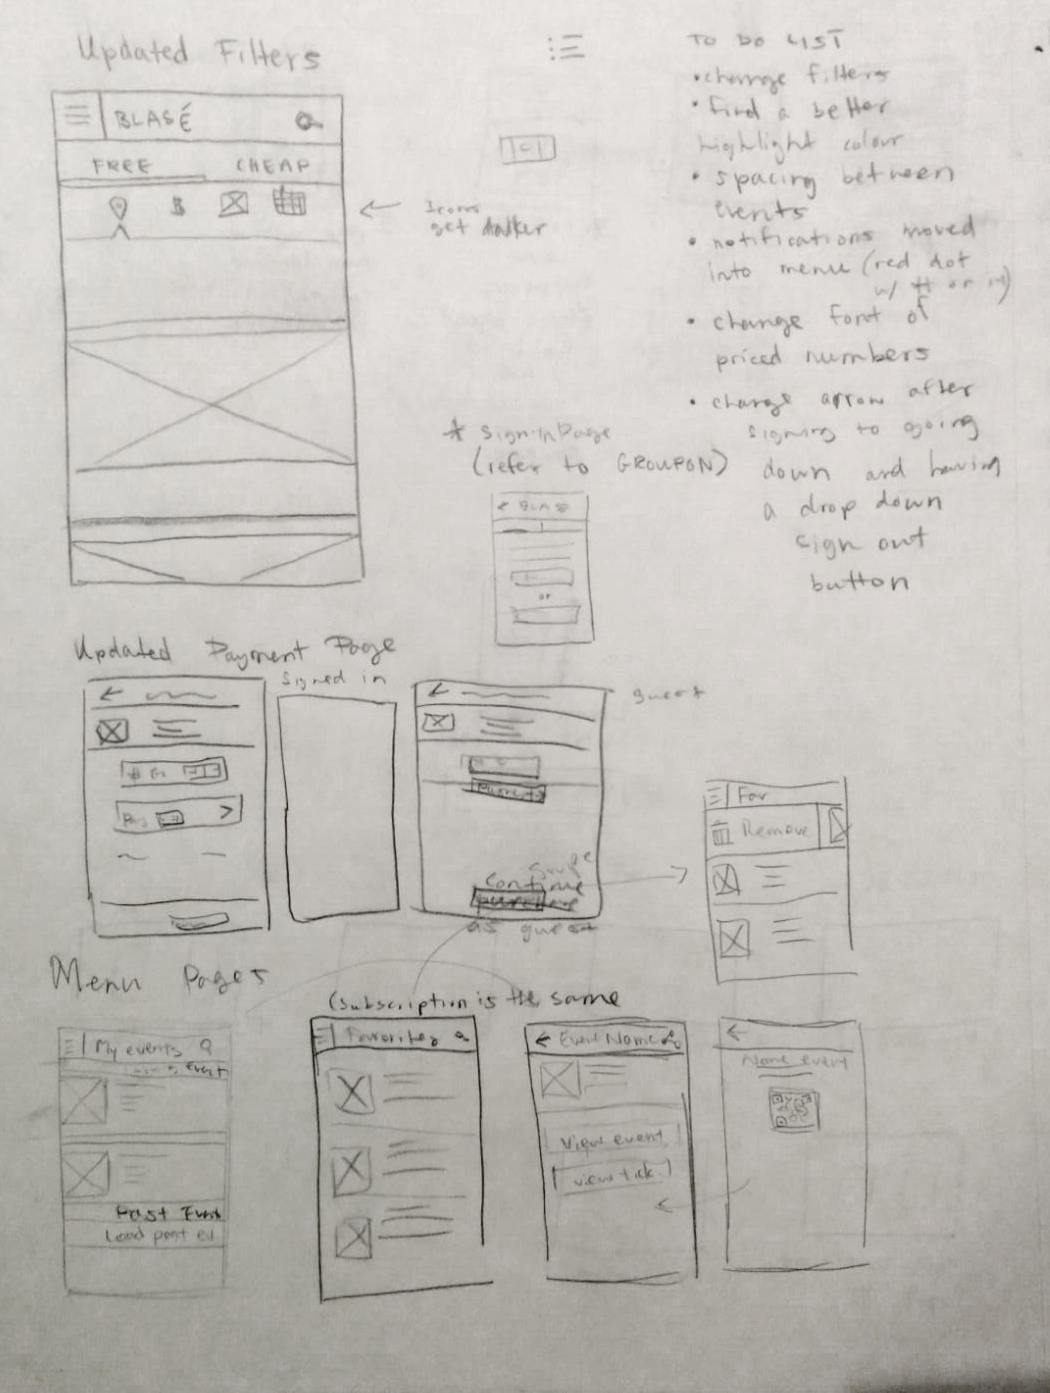 Updated Filters
BLASÉ
FREE CHEAP
Icons
get darker
TO DO LIST
• change filters
• find a better
highlight colour
• spacing between
events
• notifications moved
into menu (red dot
w/ # on it)
• change font of
priced numbers
• change arrow after
signing to going
down and having
a drop down
sign out
button
* Sign in Page
(refer to GROUPON)
< BLASE
or
Updated Payment Page
Signed in
guest
Swipe
continue
purchase
as guest
Fav
Remove
Menu Pages
(Subscription is the same
My events
Event
Past Event
Load past ev
Favorites
Event Name
View event
view tick.
Name event